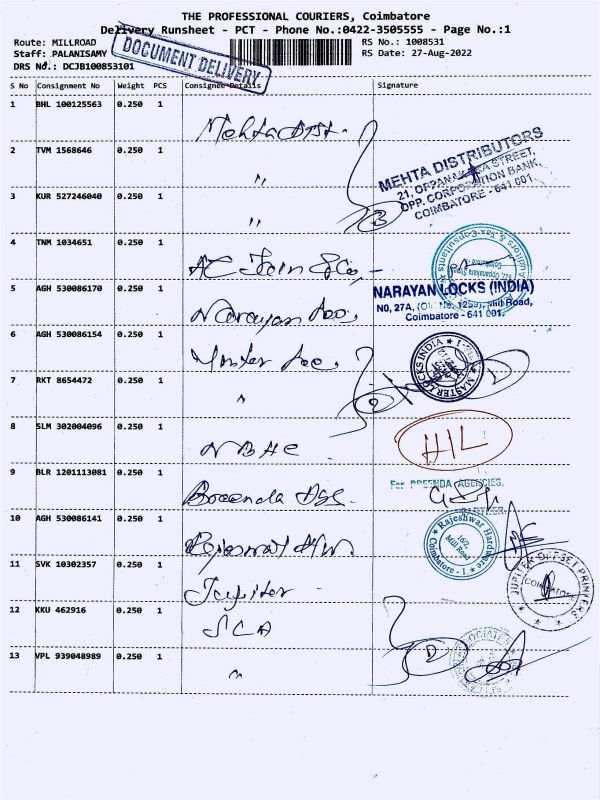 THE PROFESSIONAL COURIERS, Coimbatore
Delivery Runsheet - PCT - Phone No.:0422-3505555 - Page No.:1
Route: MILLROAD
RS No.: 1008531
Staff: PALANISAMY
RS Date: 27-Aug-2022
DRS No.: DCJB100853101
DOCUMENT DELIVERY
S No Consignment No Weight PCS Consignee Details Signature
1 BHL 100125563 0.250 1
Mehta Dist.
2 TVM 1568646 0.250 1
"
MEHTA DISTRIBUTORS
21, OPPANAKARA STREET,
OPP. CORPORATION BANK,
COIMBATORE - 641 001.
3 KUR 527246040 0.250 1
"
3
4 TNM 1034651 0.250 1
Jain & Co,
Auditors & Tax Consultants
5 AGH 530086170 0.250 1
Narayan
NARAYAN LOCKS (INDIA)
NO, 27A, Mill Road,
Coimbatore - 641 001.
6 AGH 530086154 0.250 1
MASTER LOCKS INDIA
7 RKT 8654472 0.250 1
"
2
8 SLM 302004096 0.250 1
NBHC
HIL
9 BLR 1201113081 0.250 1
For PREENDA AGENCIES,
PARTNER
10 AGH 530086141 0.250 1
Rajeshwar Hardware
162,
Mill Road
Coimbatore - 1
11 SVK 10302357 0.250 1
Jupiter
JUPITER OFFSET PRINTERS
COIMBATORE
12 KKU 462916 0.250 1
SCA
13 VPL 939048989 0.250 1
"
2